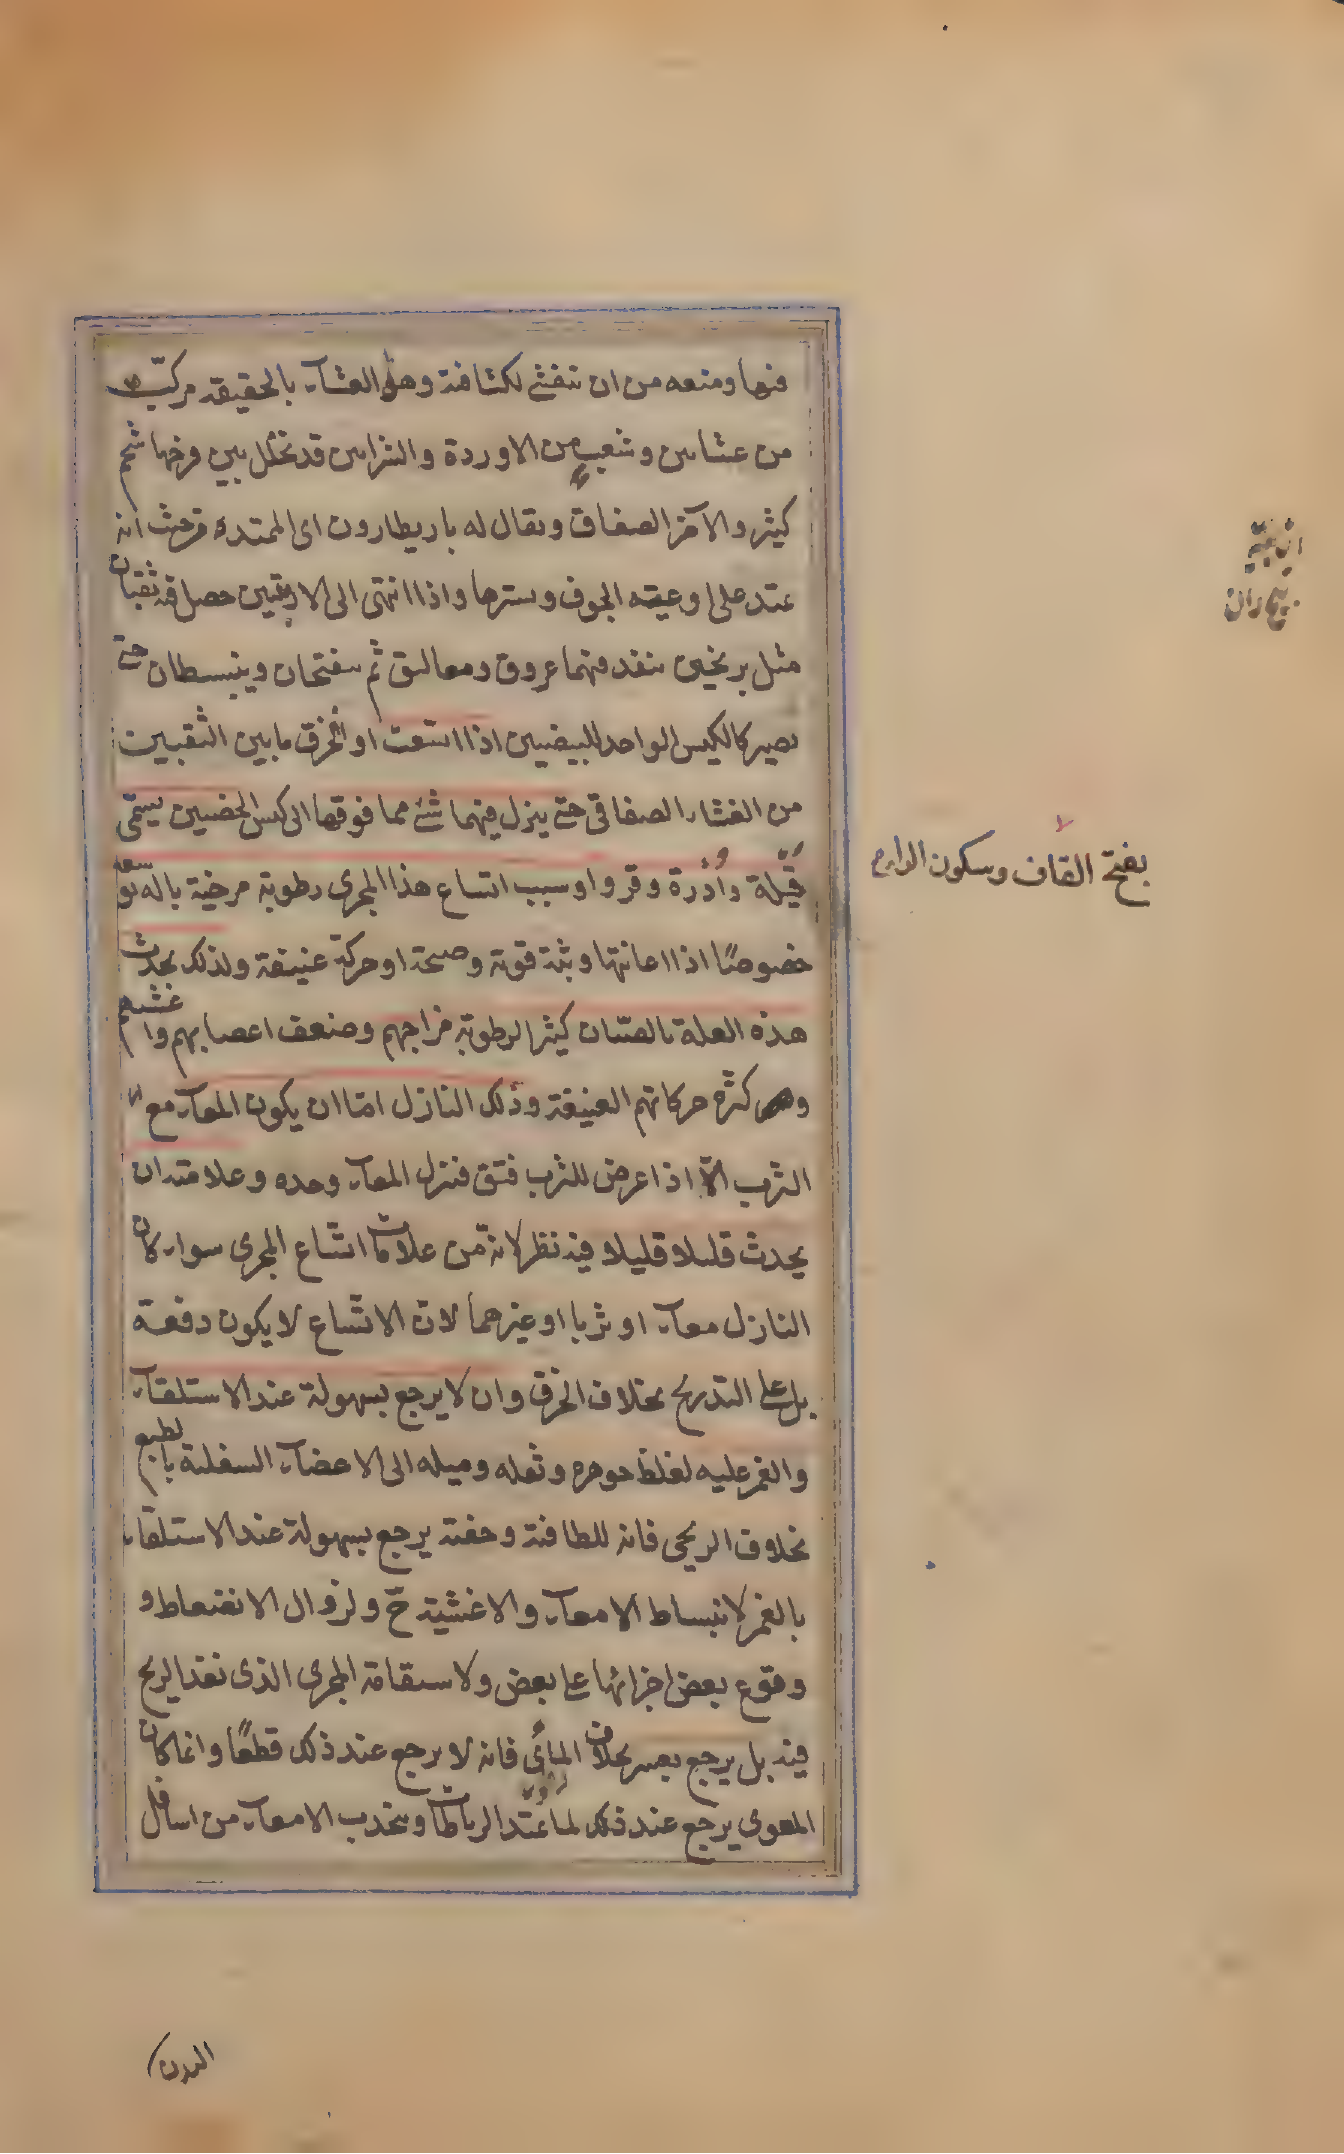 فيها ومنعه من ان تنفش لكثافته وهذا الغشاء بالحقيقة مركب
من غشائين وشعب من الاوردة والشرائين قد تخلل بين فرجها شحم
كثير والآخر الصفاق ويقال له باريطارون اى الممتد من حيث انه
يمتد على اوعية الجوف ويسترها واذا انتهى الى الاربيتين حصل فيه ثقبان
مثل بربخين ينفد فيهما عروق ومعاليق ثم ينفتحان وينبسطان حتى
يصير كالكيس الواحد للبيضتين اذا اتسعت او انخرق ما بين الثقبين
من الغشاء الصفاقى حتى ينزل فيهما شئ مما فوقها الى كيس الخصيين يسمى
قيلة وأدرة وقروا وسبب اتساع هذا المجرى رطوبة مرخية باله توسعه
خصوصا اذا اعانتها وثبة قوية وصيحة او حركة عنيفة ولذلك يحدث
هذه العلة بالصبيان كثيرا لرطوبة مزاجهم وضعف اعصابهم واغشيتهم
وكثرة حركاتهم العنيفة وذلك النازل اما ان يكون المعاء مع
الثرب الا اذا عرض للثرب فتق فنزل المعاء وحده وعلامته ان
يحدث قليلا قليلا فيه نظر لانه من علامات اتساع المجرى سواء كان
النازل معاء او ثربا او غيرهما لان الاتساع لا يكون دفعة
بل على التدريج بخلاف الخرق وان لا يرجع بسهولة عند الاستلقاء
والغمز عليه لغلظ جوهره وثقله وميله الى الاعضاء السفلية بالطبع
بخلاف الريحى فانه للطافته وخفته يرجع بسهولة عند الاستلقاء
بالغمز لانبساط الامعاء والاغشية ح ولزوال الانضغاط و
وقوع بعض اجزائها على بعض ولاستقامة المجرى الذى نفذ الريح
فيه بل يرجع بعسر بخلاف المائى فانه لا يرجع عند ذلك قطعا وانما كان
المعوى يرجع عند ذلك لما يمتد الرباطات وينجذب الامعاء من اسافل
بفتح القاف وسكون الراء
البدن